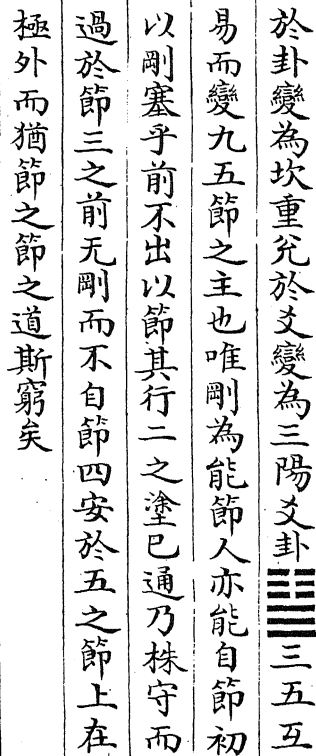 於卦變為坎重兊於爻變為三陽爻卦䷊三五互
易而變九五節之主也唯剛為能節人亦能自節初
以剛塞乎前不出以節其行二之塗巳通乃株守而
過於節三之前无剛而不自節四安於五之節上在
極外而猶節之節之道斯窮矣